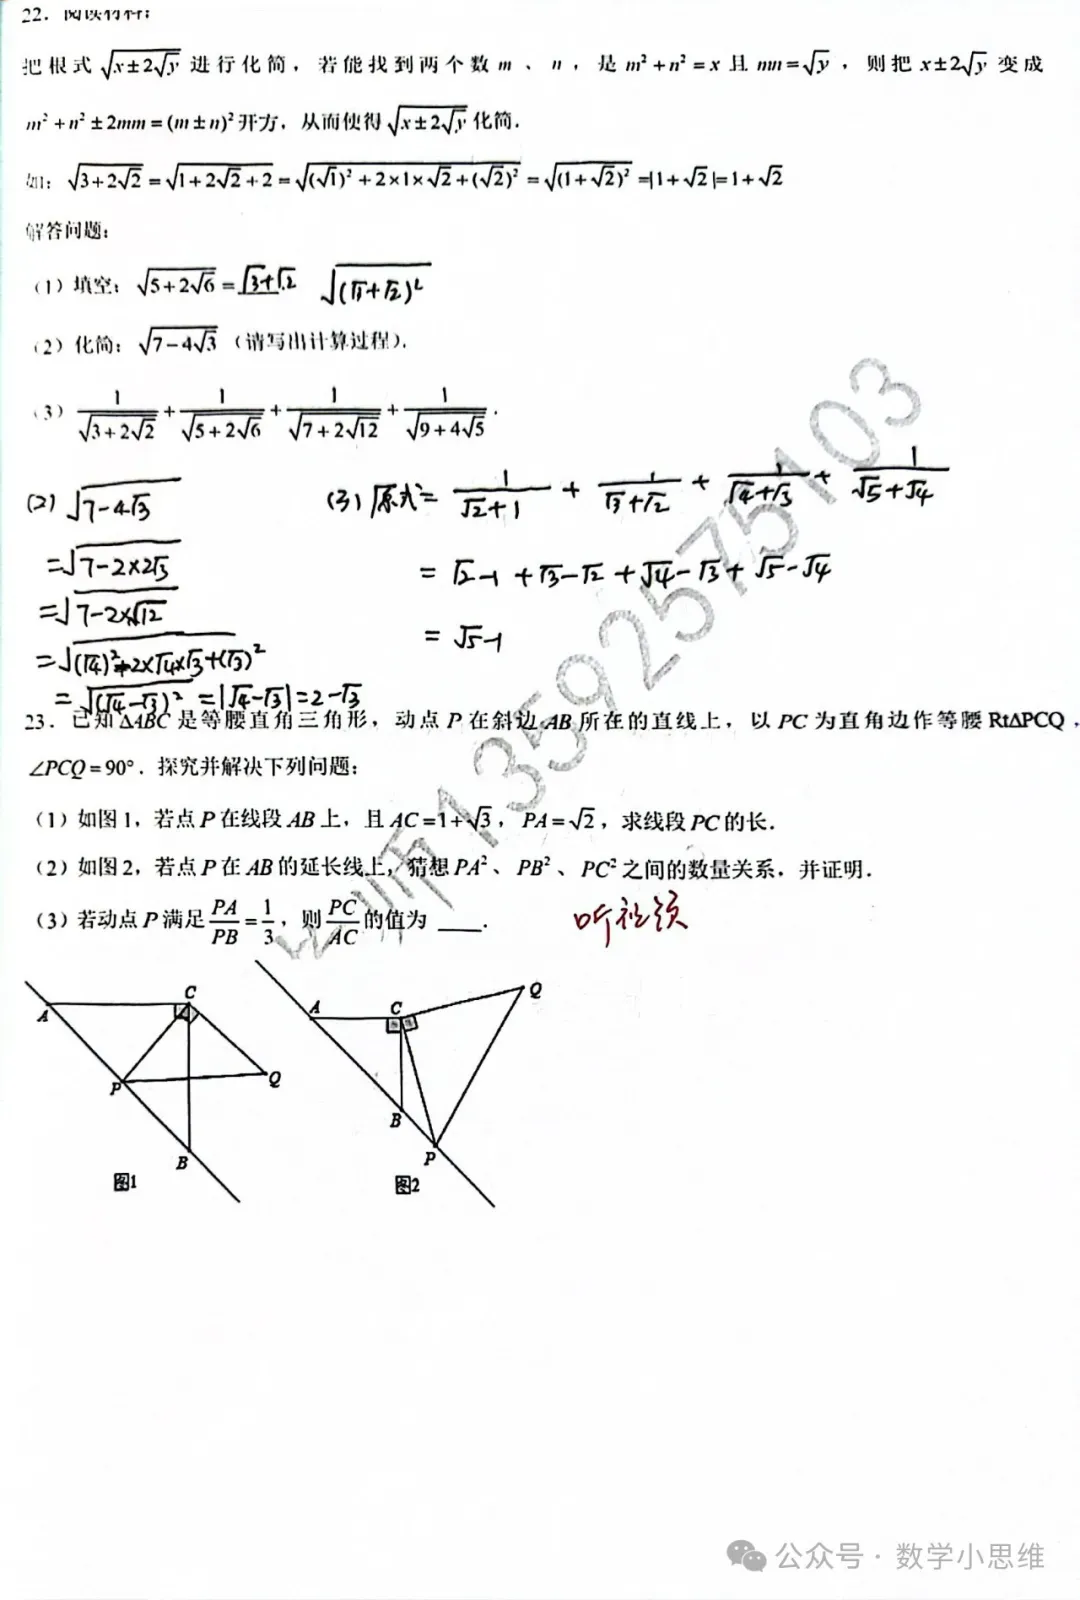 22. 阅读材料:
把根式 √(x±2√y) 进行化简，若能找到两个数 m 、 n ，是 m²+n²=x 且 mn=√y ，则把 x±2√y 变成
m²+n²±2mm=(m±n)²开方，从而使得 √(x±2√y) 化简.
如: √(3+2√2)=√(1+2√2+2)=√((√1)²+2×1×√2+(√2)²)=√((1+√2)²)=|1+√2|=1+√2
解答问题:
(1) 填空: √(5+2√6)=√3+√2 √((√3+√2)²)
(2) 化简: √(7-4√3) (请写出计算过程).
(3) 1/√(3+2√2)+1/√(5+2√6)+1/√(7+2√12)+1/√(9+4√5).
(2) √(7-4√3)
=√(7-2×2√3)
=√(7-2×√12)
=√((√4)²-2×√4×√3+(√3)²)
=√((√4-√3)²)=|√4-√3|=2-√3
(3) 原式=1/(√2+1)+1/(√3+√2)+1/(√4+√3)+1/(√5+√4)
=√2-1+√3-√2+√4-√3+√5-√4
=√5-1
23. 已知△ABC 是等腰直角三角形，动点 P 在斜边 AB 所在的直线上，以 PC 为直角边作等腰 Rt△PCQ，
∠PCQ=90°. 探究并解决下列问题:
(1) 如图1，若点P在线段AB上，且AC=1+√3，PA=√2，求线段PC的长.
(2) 如图2，若点P在AB的延长线上，猜想PA²、PB²、PC²之间的数量关系，并证明.
(3) 若动点P满足PA/PB=1/3，则PC/AC的值为 ____.
听视频
A C P Q B
图1
A C Q B P
图2
师13592575103
公众号·数学小思维